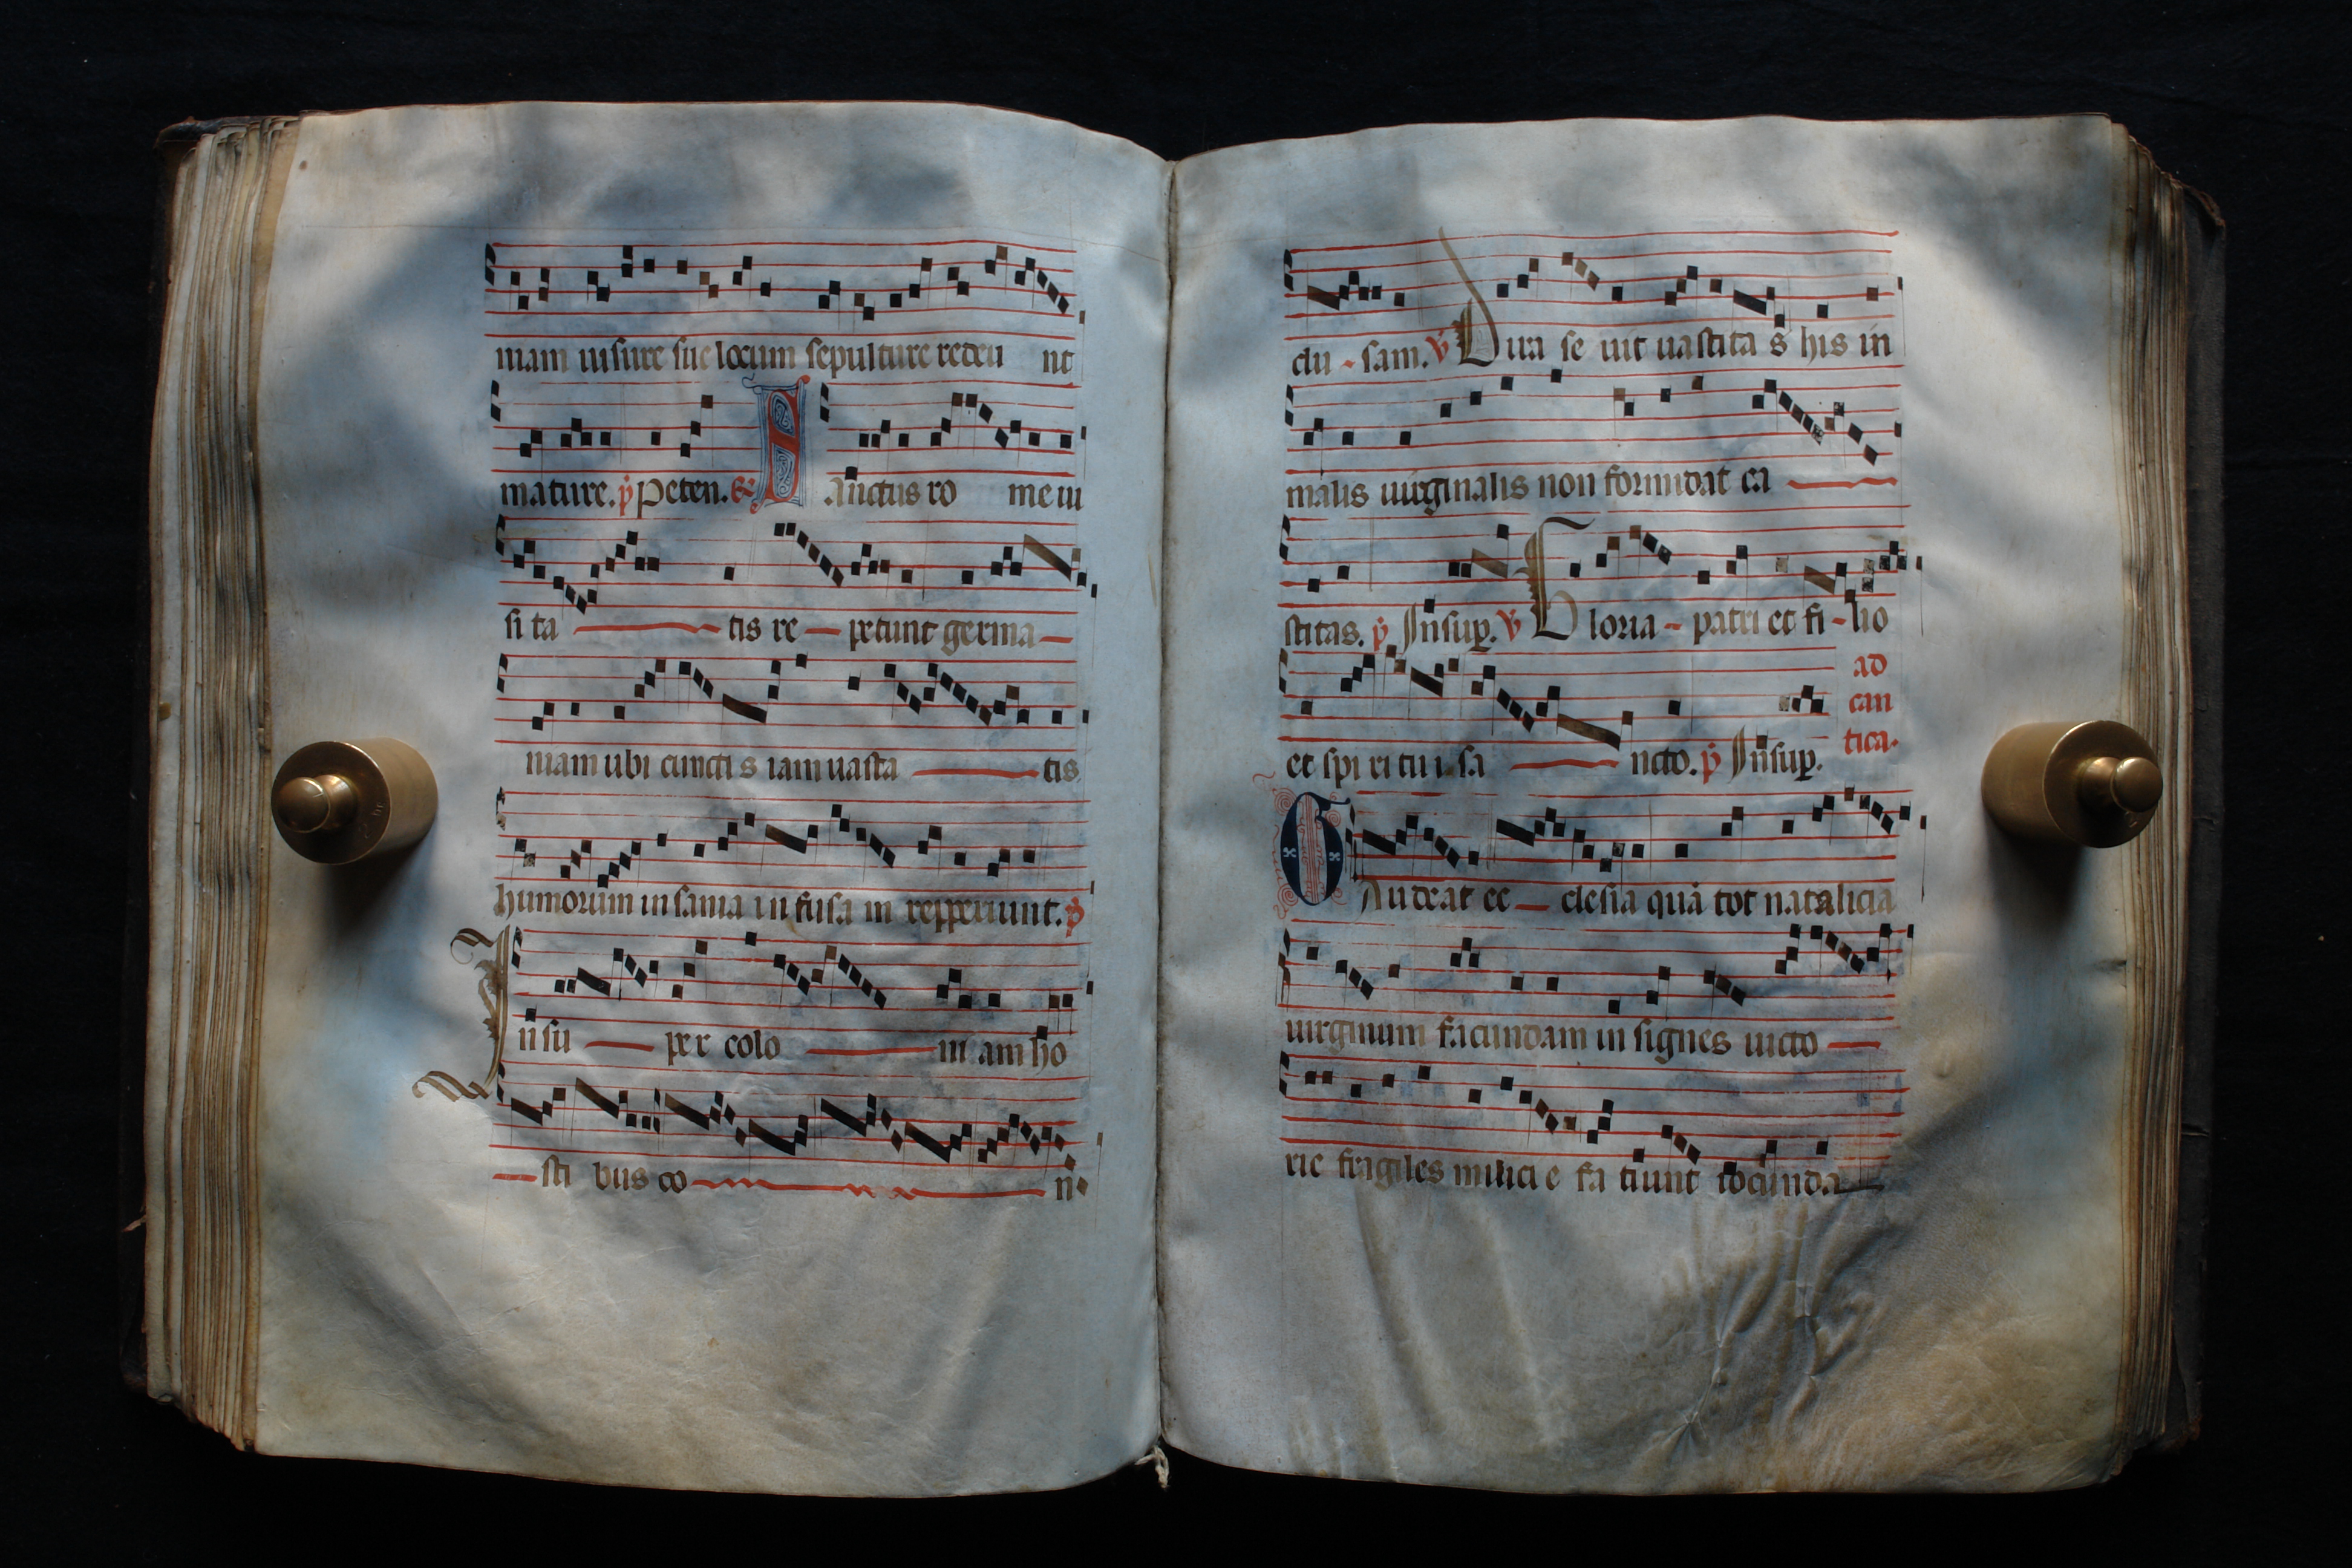 niam iussure sue locum sepulture redeu nt
mature. p̄ Peten. ℟ S anctus ro me ui
si ta tis re petunt germa
niam ubi cuncti s iam uasta tis
humorum in sania in fusa m repperiunt. p̄
In su per colo ni am ho
sti bus co n
clu - sam. v̄ Dua se uit uastita s his in
malis uirginalis non formidat ca
stitas. p̄ Insup. v̄ Gloria - patri et fi - lio
et spi ri tu i sa ncto. p̄ Insup.
ad
can
tica.
GAudeat ec clesia quā tot natalicia
uirginum facundam in signes uicto
rie fragiles milici e fa ciunt iocunda